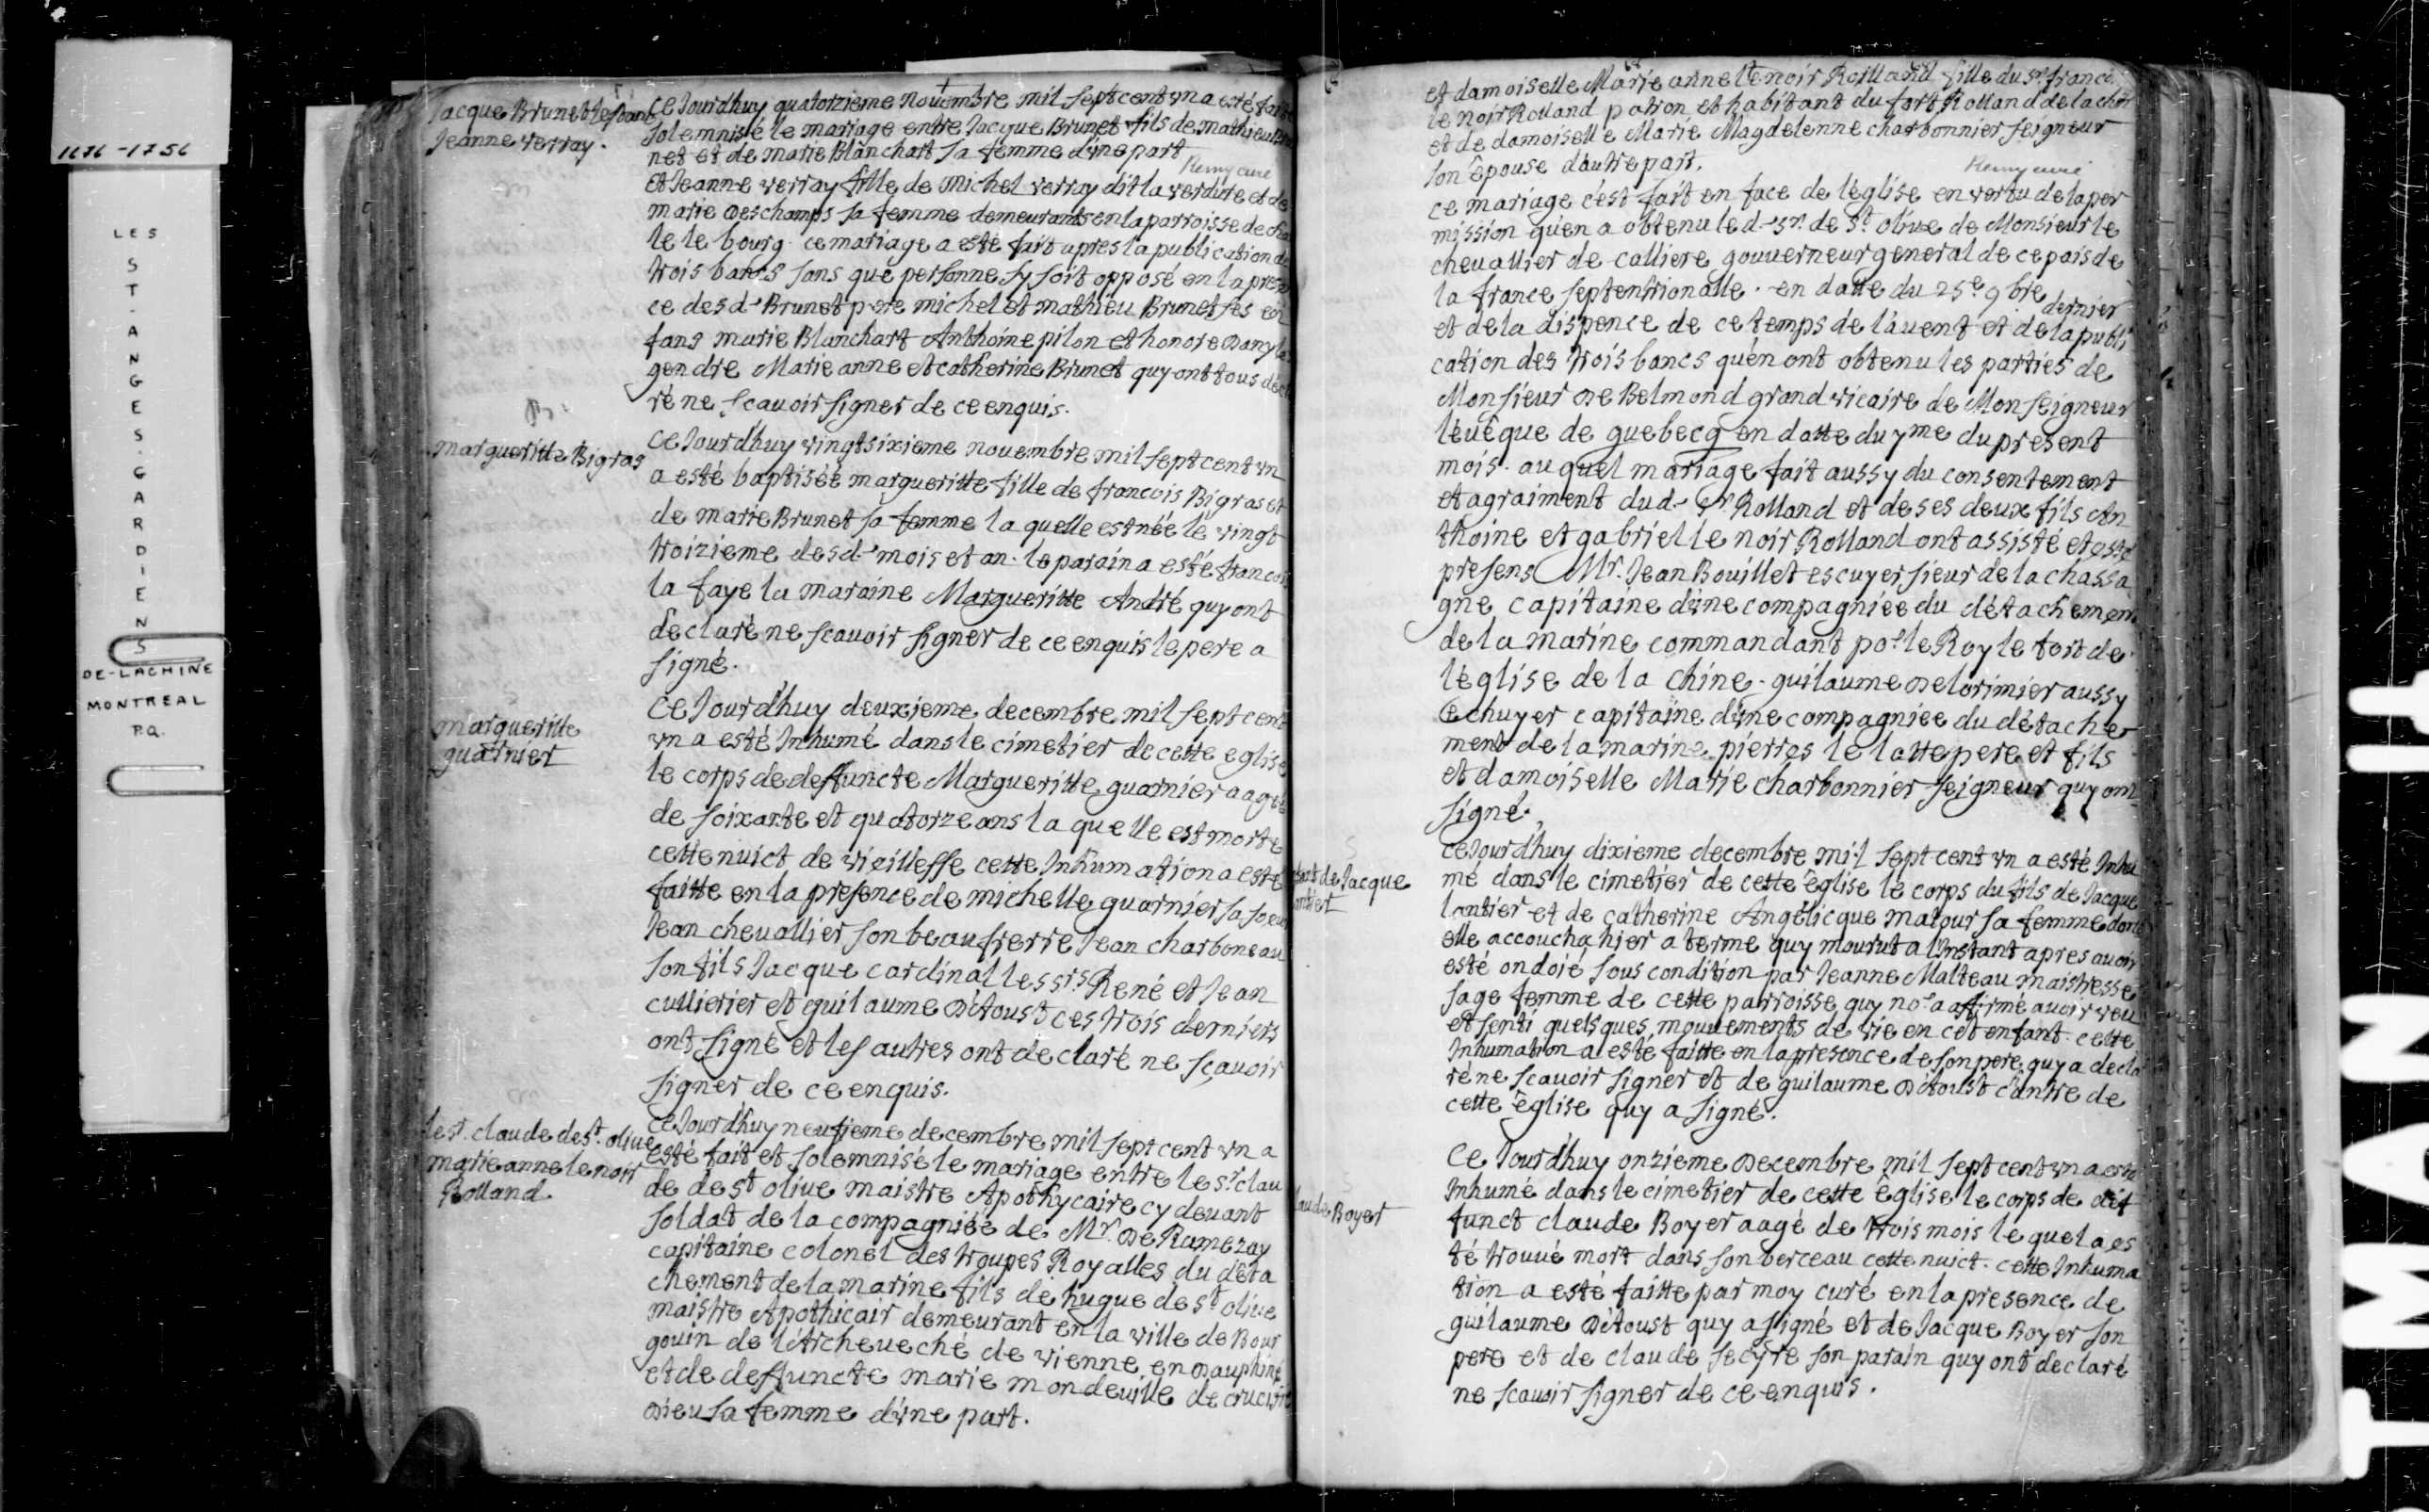 1676 - 1756
LES
ST-ANGES-GARDIENS
DE-LACHINE
MONTREAL
P.Q.
Jacque Brunet
Jeanne verray.
Ce Jourdhuy quatorzieme Nouembre mil sept cent vn a esté fait
solemnisé le mariage entre Jacque Brunet fils de mathieu Bru
net et de marie Blanchart sa femme d'vne part
Remy curé
Et Jeanne verray fille de Michel verray dit la verdure et de
marie Deschamps sa femme demeurants en la parroisse de cha
le le bourg. ce mariage a esté fait apres la publication de
trois bancs sans que personne s'y soit opposé en la presen
ce des d. Brunet pere michel et mathieu Brunet ses en
fans marie Blanchart Anthoine pilon et honore Dany le
gendre Marie anne et catherine Brunet quy ont tous decla
ré ne scauoir signer de ce enquis.
margueritte Bigras
Ce Jourdhuy vingt sixieme nouembre mil sept cent vn
a esté baptiséé margueritte fille de francois Bigras et
de marie Brunet sa femme la quelle est néé le vingt
troizieme desd. mois et an. le parain a esté francois
la faye la maraine Margueritte André quy ont
declaré ne scauoir signer de ce enquis le pere a
signé.
margueritte
guarnier
Ce Jourd'huy deuxieme decembre mil sept cent
vn a esté Inhumé dans le cimetier de cette eglise
le corps de deffuncte Margueritte guarnier aagée
de soixante et quatorze ans la quelle est morte
cette nuict de vieillesse cette Inhumation a esté
faitte en la presence de michelle guarnier sa soeur
Jean cheuallier son beaufrerre Jean charboneau
son fils Jacque cardinal les srs René et Jean
cullierier et guilaume Détoust ces trois derniers
ont signé et les autres ont declaré ne scauoir
signer de ce enquis.
le sr. claude de st. oliue
marie anne le noir
Rolland.
Ce Jourd'huy neufieme decembre mil sept cent vn a
esté fait et solemnisé le mariage entre le sr. clau
de de st oliue maistre Apothycaire cy deuant
soldat de la compagniéé de Mr. De Ramezay
capitaine colonel des troupes Royalles du déta
chement de la marine fils de hugue de st oliue
maistre Apothicair demeurant en la ville de Bour
gouin de l'Archeueché de vienne en Dauphiné
et de deffuncte marie mondeuille de
Dieu sa femme d'vne part.
et damoiselle Marie anne le noir Rolland fille du sr. franco
le noir Rolland patron et habitant du fort Rolland de la chin
et de damoiselle Marie Magdelenne charbonnier seigneur
son épouse d'autre part.
Remy curé
ce mariage c'est fait en face de l'église en vertu de la per
mission qu'en a obtenu le d. sr. de st. oliue de Monsieur le
cheuallier de calliere gouuerneur general de ce pais de
la france septentrionalle. en datte du 25e 9bre dernier
et de la dispence de ce temps de l'auent et de la publi
cation des trois bancs qu'en ont obtenu les parties de
Monsieur De Belmond grand vicaire de Monseigneur
l'euêque de quebecq en datte du yme du present
mois. au quel mariage fait aussy du consentement
et agraiment du d. sr Rolland et de ses deux fils An
thoine et gabriel le noir Rolland ont assisté et esté
presens Mr. Jean Bouillet escuyer sieur de la chassa
gne capitaine d'vne compagniée du détachement
de la marine commandant po.r le Roy le fort de
l'église de la chine. guilaume Delorimier aussy
echuyer capitaine d'vne compagniée du détache
ment de la marine. pierres le latte pere et fils
et damoiselle Marie charbonnier seigneur quy ont
signé.
de Jacque
lantier
ce Jourd'huy dixieme decembre mil sept cent vn a esté Inhu
mé dans le cimetier de cette église le corps du fils de Jacque
lantier et de catherine Angélicque matour sa femme dont
elle accoucha hier a terme quy mourut a l'Instant apres auoir
esté ondoié sous condition par Jeanne Malteau maistresse
sage femme de cette parroisse quy no.s a affirmé auoir veu
et senti quelsques mouuements de vie en cet enfant. cette
Inhumation a esté faitte en la presence de son pere quy a decla
ré ne scauoir signer et de guilaume Détoust chantre de
cette église quy a signé.
Claude Boyer
Ce Jourd'huy onzieme Decembre mil sept cent vn a esté
Inhumé dans le cimetier de cette Eglise le corps de def
funct claude Boyer aagé de trois mois le quel a es
té trouué mort dans son berceau cette nuict. cette Inhuma
tion a esté faitte par moy curé en la presence de
guilaume Détoust quy a signé et de Jacque Boyer son
pere et de claude secyre son parain quy ont declaré
ne scauoir signer de ce enquis.